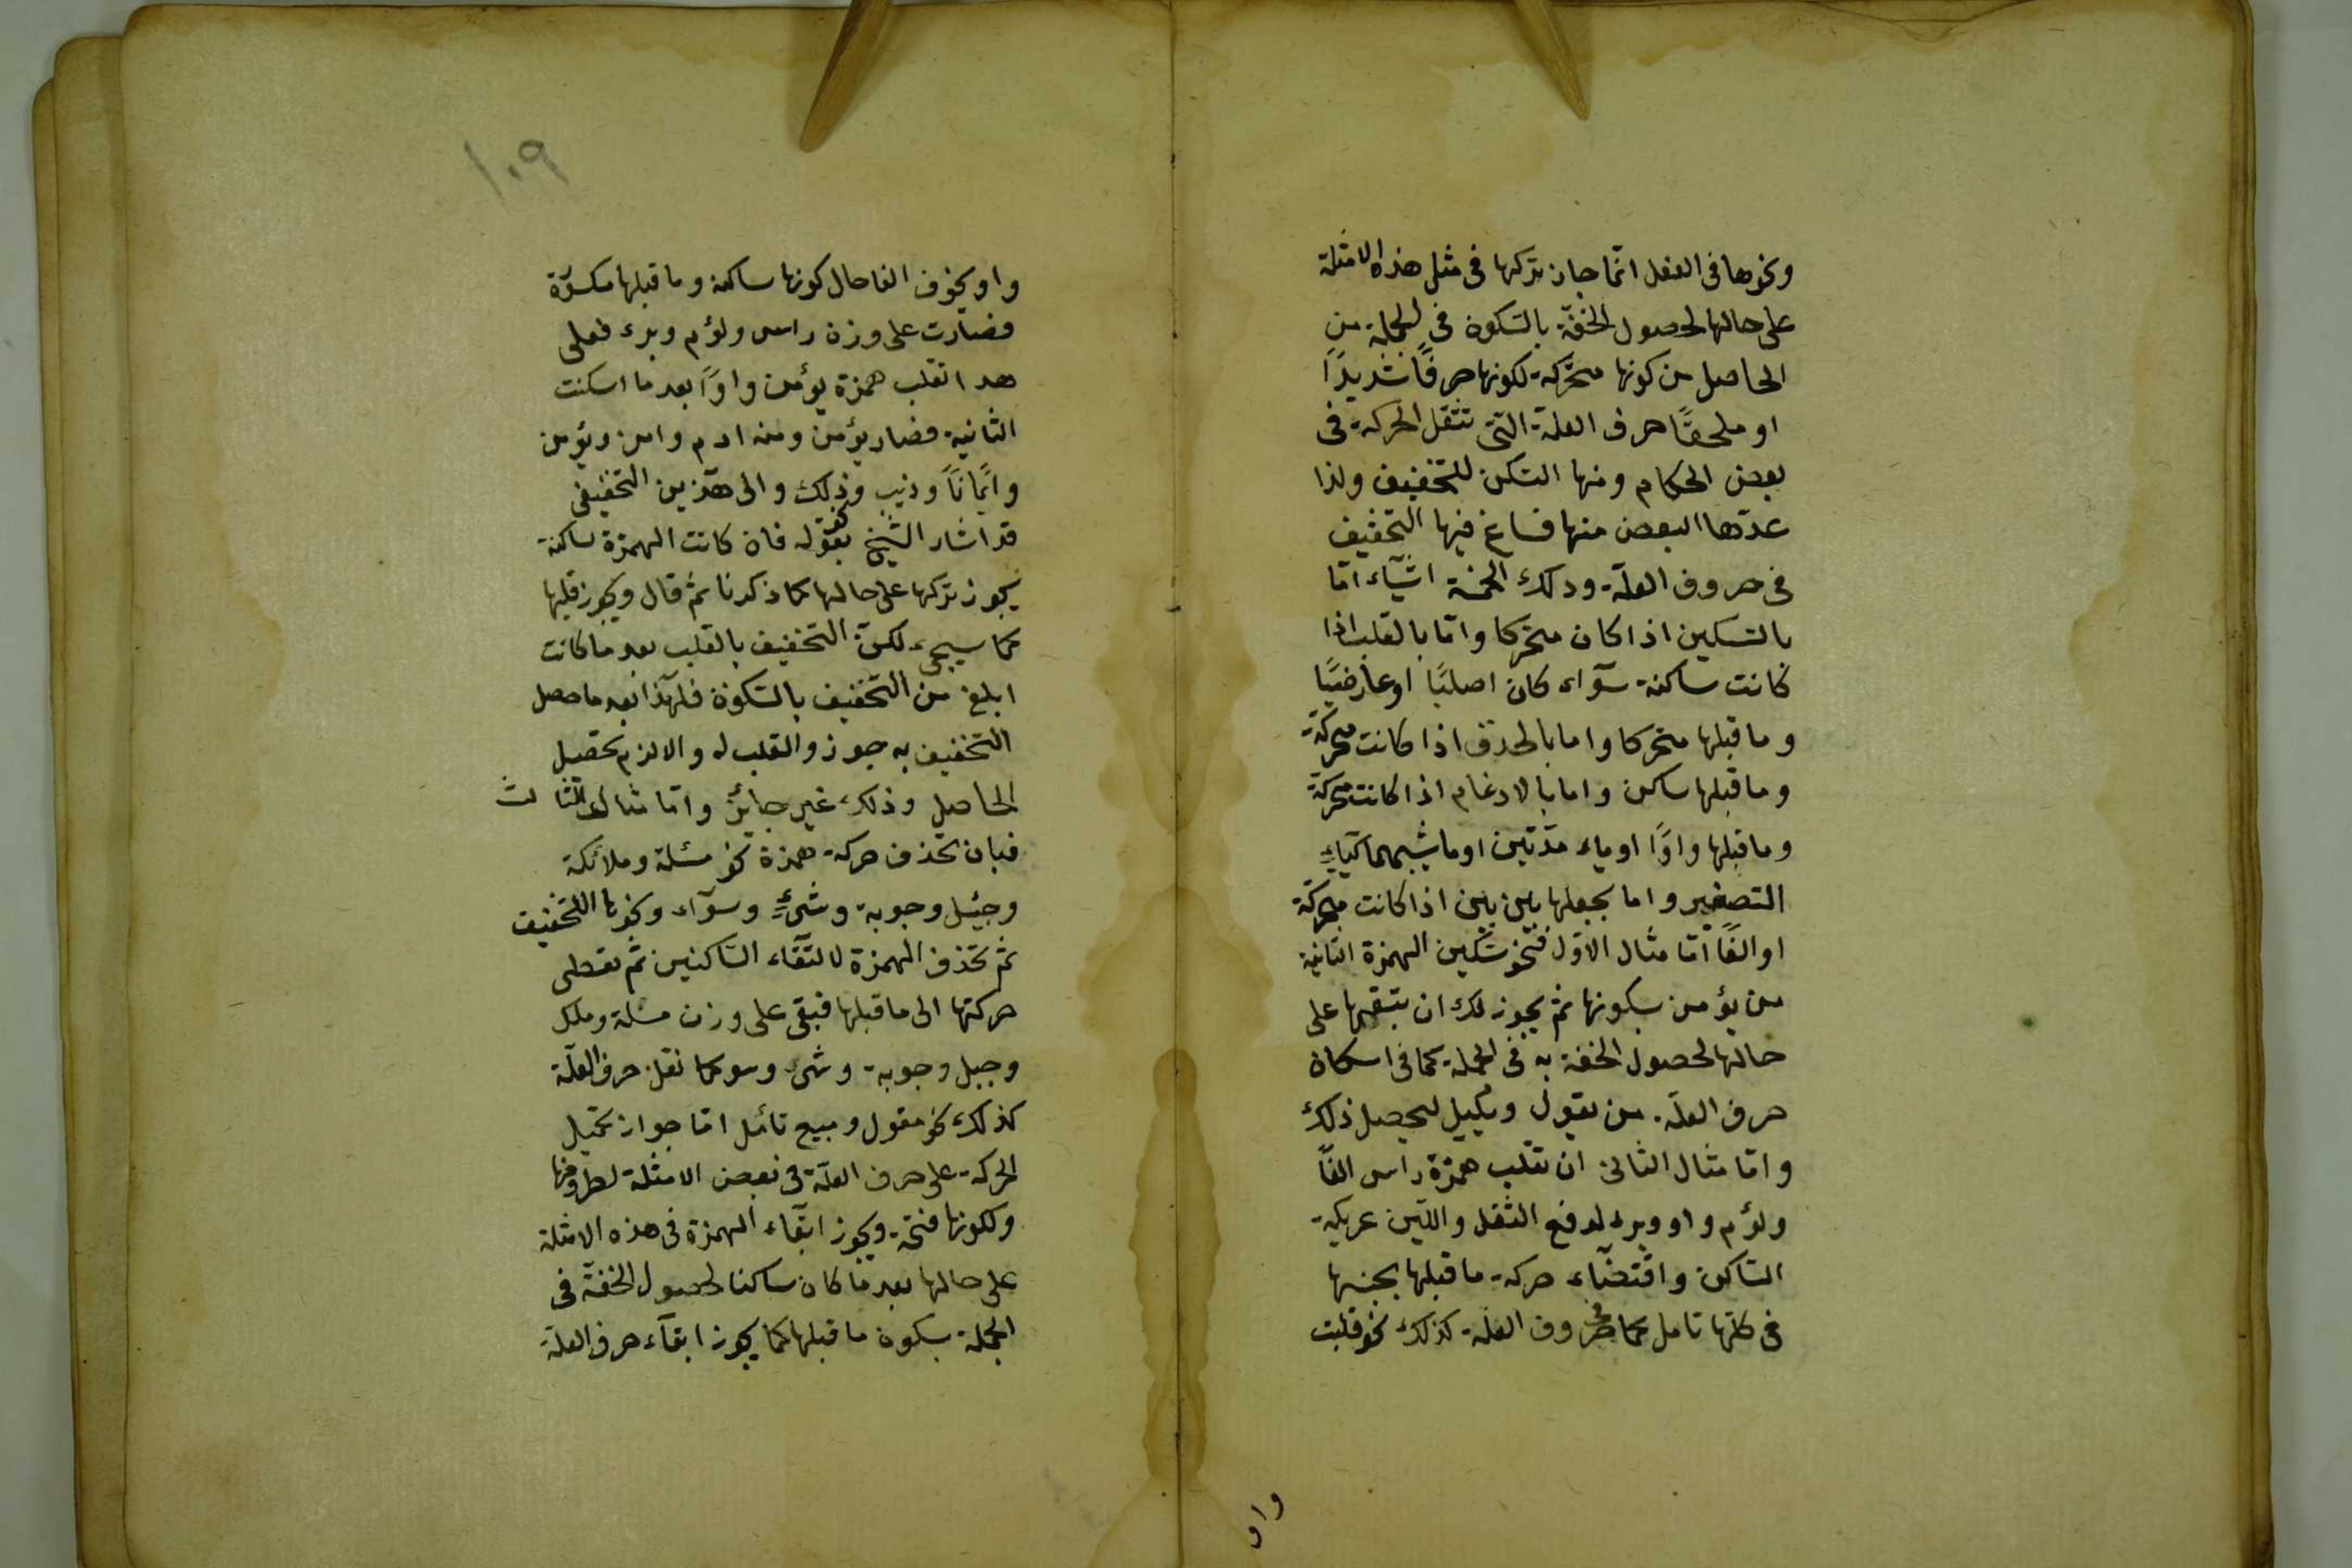 ونحوها فى الفعل انّما جاز تركها فى مثل هذه الامثلة
على حالها لحصول الخفّة بالسّكون فى الجملة من
الحاصل من كونها متحّركة لكونها حرفًا شديدًا
او ملحقًا حرف العلة التى تثقل الحركة فى
بعض الحكام ومنها التسكن للتخفيف ولذا
عدّها البعض منها فساغ فيها التخفيف
فى حروف العلّة وذلك الخمسة اشيآء امّا
بالتسكين اذا كان متحركا وامّا بالقلب اذا
كانت ساكنة سوآء كان اصليًا او عارضيًا
وما قبلها متحركا واما بالحذف اذا كانت متحركة
وما قبلها ساكن واما بالادغام اذا كانت متحركة
وما قبلها واوًا او ياء مدّتين او ما يشبههما كياء
التصغير واما بجعلها بين بين اذا كانت متحركة
او الفًا امّا مثال الاوّل فنحو تسكين الهمزة الثانية
من يؤمن بسكونها ثم يجوز لك ان تبقيها على
حالها لحصول الخفة به فى الجملة كما فى اسكان
حرف العلّة من يقول ويكيل ليحصل ذلك
وامّا مثال الثانى ان تقلب همزة راس الفًا
ولؤم واو وبرء لدفع الثقل واللّين عريكة
السّاكن واقتضآء حركة ما قبلها بجنسها
فى كلها تامل كما فى حروف العلّة كذلك نحو قلبت
واو
١٠٩
واو يخوف الفا حال كونها ساكنة وما قبلها مكسرّة
فصارت على وزن راس ولؤم وبرء فعلى
هذا تقلب همزة يؤمن واوًا بعد ما اسكنت
الثانية فصار يؤمن ومنه ادم وامن ويؤمن
وايمانًا وذيب وذلك والى هذين التخفيفى
قد اشار الشيخ بقوله فان كانت الهمزة ساكنة
يجوز تركها على حالها كما ذكرنا ثم قال ويجوز قلبها
كما سيجىء لكن التخفيف بالقلب بعد ما كانت
ابلغ من التخفيف بالسّكون فلهذا بعد ما حصل
التخفيف به جوزوا القلب له والا لزم تحصيل
الحاصل وذلك غير جائز وامّا مثال الثالث
فبان تحذف حركة همزة نحو مسئلة وملائكة
وجيئل وجوبة وشئ وسوآء ونحوها للتخفيف
ثم تحذف الهمزة لالتقآء السّاكنين ثم تعطى
حركتها الى ما قبلها فبقى على وزن مسلة وملك
وجيل وجوبة وشى وسو كما نقل حرف العلّة
كذلك نحو مقول ومبيع تائمل امّا جواز تحمّل
الحركة على حرف العلّة فى بعض الامثلة لطروها
ولكونها فتحة ويجوز ابقآء الهمزة فى هذه الامثلة
على حالها بعد ما كان ساكنا لحصول الخفّة فى
الجملة بسكون ما قبلها كما يجوز ابقآء حرف العلّة